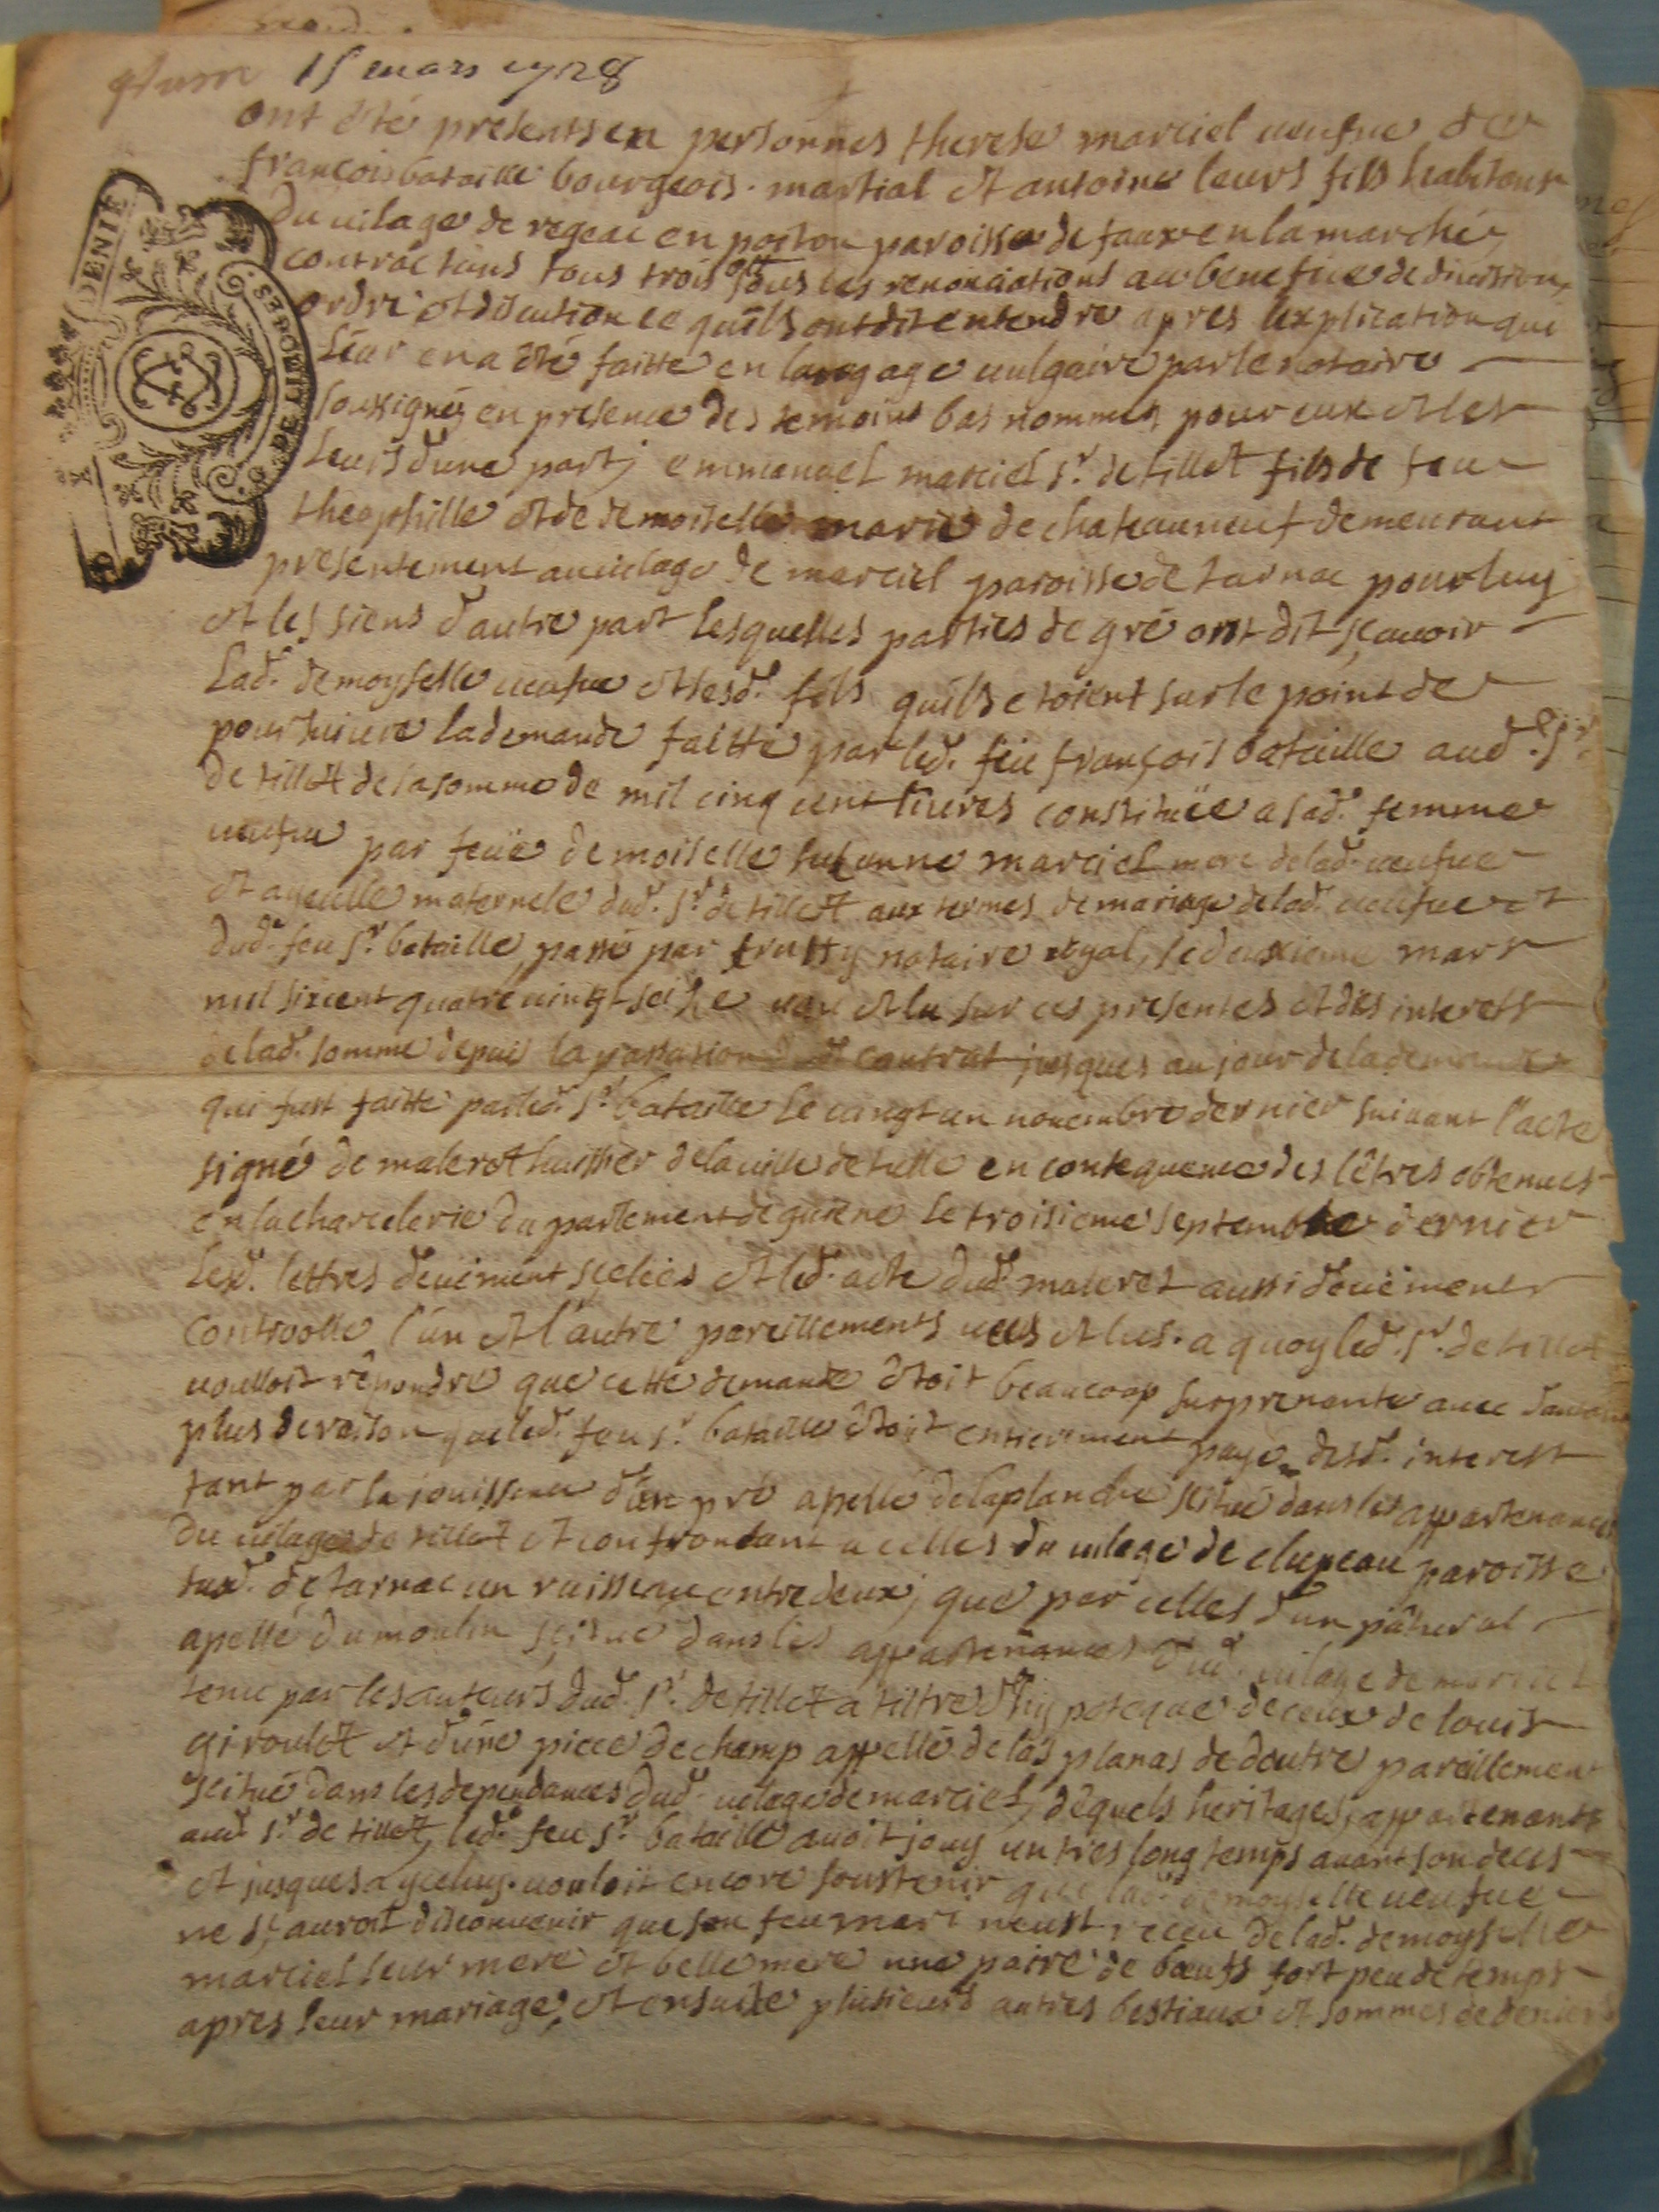 15 mars 1728
ont été presents en personnes therese marciel veufue de
françois bataille bourgeois. martial et antoine leurs fils habitans
du vilage de regeac en poitou paroisse de faux en la marche,
contractans tous trois sous les renonciations au benefice de division,
ordre et discution ce quils ont dit entendre apres lexplication qui
leur en a été faitte en langage vulgaire par le notaire
soussigné, en presence des temoins bas nommés, pour eux et les
leurs d'une part; emmanuel marciel sr. de tillet fils de feu
theophille et de demoiselle marie de chateauneuf demeurant
presentement au vilage de marciel paroisse de tarnac pour luy
et les siens d'autre part lesquelles parties de gré ont dit sçauoir
Lad. demoyselle veufue et lesd. fils quils etoient sur le point de
poursuiure la demande faitte par led. feu françois bataille aud. sr.
de tillet de la somme de mil cinq cent liures constituëe a sad. femme
veufue par feüe demoiselle suzanne marciel mere delad. veufue
et ayeulle maternele dud. sr. de tillet aux termes de mariage delad. veufue et
dud. feu sr. bataille, passé par notaire royal, le deuxieme mars
mil sixcent quatre vingt seize veu et lu sur ces presentes et des interets
de lad. somme depuis la passation dud. contrat jusques au jour de la demande
qui fust faitte par led. sr. bataille le vingt un nouembre dernier suiuant l'acte
signé de maleret huissier de la ville de tulle en consequence des lêtres obtenues
en la chancelerie du parlement de guiene le troisieme septembre dernier
Lesd. lettres deuëment scelées et led. acte dud. maleret aussi deuëment
Controolle l'ùn et l'autre pareillements veus et lus. a quoy led. sr. de tillet
voulloit rêpondre que cette demande étoit beaucoop surprenante auec dautant
plus de raison que led. feu sr. bataille étoit entierement payé desd. interest
tant par la jouissance d'un pré apellé de la planche scitué dans les appartenances
du vilage de tillet et confrontant a celles du vilage de clupeau paroisse
sud. de tarnac un ruisseau entre deux; que par celles d'un pâtural
apellé du moulin scitué dans les appartenances dud. vilage de marciel
tenu par les auteurs dud. sr. de tillet a tiltre d'hypoteque de ceux de louis
giroulet et d'une piece de champ appellé de las planas de doutre pareillement
scitué dans les dependances dud. vilage de marciel, dêquels heritages, appartenants
aud. sr. de tillet, led. feu sr. bataille auoit jouy un tres long temps auant son deces
et jusques a yceluy. vouloit encore soustenir que lad. demoyselle veufue
ne sçauroit disconuenir que son feu mari neust receu de lad. demoyselle
marciel leur mere et belle mere une paire de bœufs fort peu de temps
apres leur mariage, et ensuite plusieurs autres bestiaux et sommes de deniers